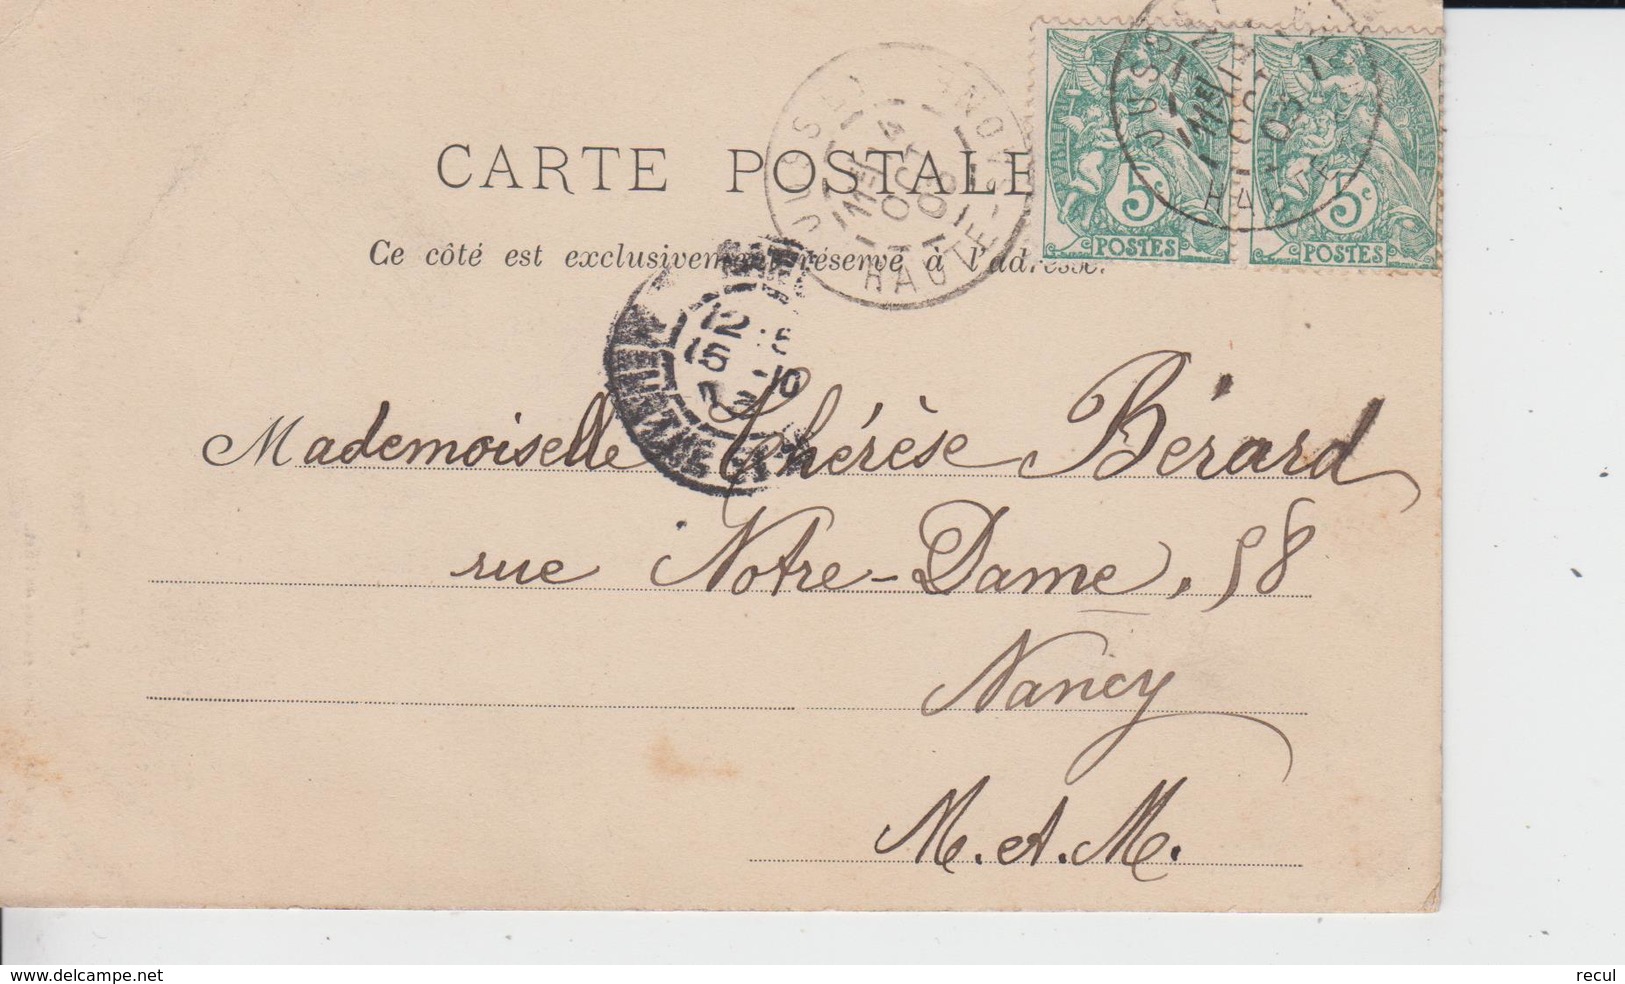 CARTE POSTALE
Ce côté est exclusivement réservé à l'adresse.
5c 5c
POSTES POSTES
JUSSEY
4
OCT
03
HAUTE-SAONE
12
15 -10
Mademoiselle Thérèse Bérard
rue Notre-Dame, 58
Nancy
M. et M.
www.delcampe.net
recul